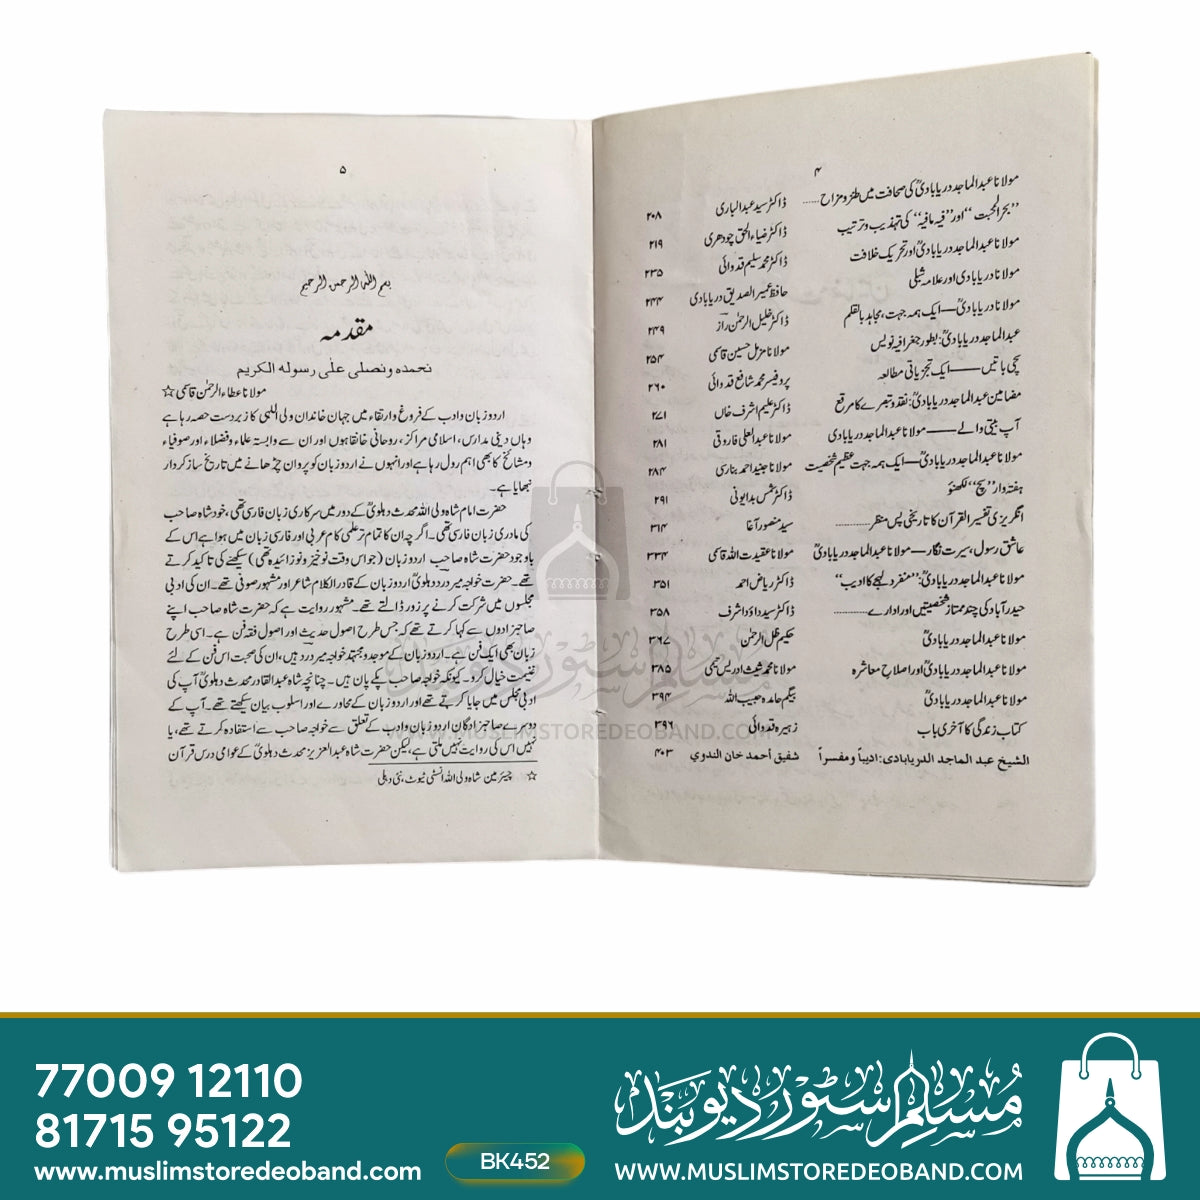 ۴
مولانا عبدالماجد دریابادیؒ کی صحافت میں طنز و مزاح ......... ڈاکٹر سید عبدالباری ۲۰۸
”بحر المحبت“ اور ”فیہ مافیہ“ کی تہذیب و ترتیب ڈاکٹر ضیاء الحق چودھری ۲۱۹
مولانا عبدالماجد دریابادیؒ اور تحریک خلافت ڈاکٹر محمد سلیم قدوائی ۲۳۵
مولانا دریابادی اور علامہ شبلی حافظ عمیر الصدیق دریابادی ۲۴۴
مولانا دریابادیؒ — ایک ہمہ جہت، مجاہد بالقلم ڈاکٹر خلیل الرحمٰن راز ۲۴۹
عبدالماجد دریابادیؒ: بطور جغرافیہ نویس مولانا مزمل حسین قاسمی ۲۵۴
سچی باتیں — ایک تجزیاتی مطالعہ پروفیسر محمد شافع قدوائی ۲۶۰
مضامین عبدالماجد دریابادیؒ: نقد و تبصرے کا مرقع ڈاکٹر علیم اشرف خاں ۲۷۱
آپ بیتی والے — مولانا عبدالماجد دریابادی مولانا عبدالعلی فاروقی ۲۸۱
مولانا عبدالماجد دریابادیؒ — ایک ہمہ جہت عظیم شخصیت مولانا جنید احمد بنارسی ۲۸۴
ہفتہ وار ”سچ“ لکھنؤ ڈاکٹر شمس بدایونی ۲۹۱
انگریزی تفسیر القرآن کا تاریخی پس منظر ......... سید منصور آغا ۳۱۴
عاشق رسول، سیرت نگار — مولانا عبدالماجد دریابادیؒ مولانا عقیدت اللہ قاسمی ۳۳۴
مولانا عبدالماجد دریابادیؒ: ”منفرد لہجے کا ادیب“ ڈاکٹر ریاض احمد ۳۵۱
حیدرآباد کی چند ممتاز شخصیتیں اور ادارے ......... ڈاکٹر سید داؤد اشرف ۳۵۸
مولانا عبدالماجد دریابادیؒ حکیم ظل الرحمٰن ۳۶۷
مولانا عبدالماجد دریابادیؒ اور اصلاح معاشرہ مولانا محمد شیث ادریس تیمی ۳۸۵
مولانا عبدالماجد دریابادیؒ بیگم حامدہ حبیب اللہ ۳۹۴
کتاب زندگی کا آخری باب زہیرہ قدوائی ۳۹۶
الشيخ عبد الماجد الدريابادی: اديباً و مفسراً شفيق أحمد خان الندوي ۴۰۳
۵
بسم اللہ الرحمن الرحیم
مقدمہ
نحمدہ ونصلی علٰی رسولہ الکریم
مولانا عطاء الرحمٰن قاسمی☆
اردو زبان و ادب کے فروغ و ارتقاء میں جہان خاندان ولی اللہی کا زبردست حصہ رہا ہے
وہاں دینی مدارس، اسلامی مراکز، روحانی خانقاہوں اور ان سے وابستہ علماء و فضلاء اور صوفیاء
و مشائخ کا بھی اہم رول رہا ہے اور انہوں نے اردو زبان کو پروان چڑھانے میں تاریخ ساز کردار
نبھایا ہے۔
حضرت امام شاہ ولی اللہ محدث دہلویؒ کے دور میں سرکاری زبان فارسی تھی، خود شاہ صاحب
کی مادری زبان فارسی تھی۔ اگرچہ ان کا تمام تر علمی کام عربی اور فارسی زبان میں ہوا ہے اس کے
باوجود حضرت شاہ صاحب اردو زبان (جو اس وقت نوخیز و نوزائیدہ تھی) سیکھنے کی تاکید کرتے
تھے۔ حضرت خواجہ میر درد دہلویؒ اردو زبان کے قادر الکلام شاعر اور مشہور صوفی تھے۔ ان کی ادبی
مجلسوں میں شرکت کرنے پر زور ڈالتے تھے۔ مشہور روایت ہے کہ حضرت شاہ صاحب اپنے
صاحبزادوں سے کہا کرتے تھے کہ جس طرح اصول حدیث اور اصول فقہ فن ہے۔ اسی طرح
زبان بھی ایک فن ہے۔ اردو زبان کے موجد و مجتہد خواجہ میر درد ہیں، ان کی صحبت اس فن کے لئے
غنیمت خیال کرو۔ کیونکہ خواجہ صاحب پکے پان ہیں۔ چنانچہ شاہ عبدالقادر محدث دہلویؒ آپ کی
ادبی مجلس میں جایا کرتے تھے اور اردو زبان کے محاورے اور اسلوب بیان سیکھتے تھے۔ آپ کے
دوسرے صاحبزادگان اردو زبان و ادب کے تعلق سے خواجہ صاحب سے استفادہ کرتے تھے، یا
نہیں اس کی روایت نہیں ملتی ہے، لیکن حضرت شاہ عبدالعزیز محدث دہلویؒ کے عوامی درس قرآن
☆ چیئرمین شاہ ولی اللہ انسٹی ٹیوٹ، نئی دہلی
مسلم سٹور دیوبند
WWW.MUSLIMSTOREDEOBAND.COM
77009 12110
81715 95122
www.muslimstoredeoband.com
BK452
مسلم سٹور دیوبند
WWW.MUSLIMSTOREDEOBAND.COM